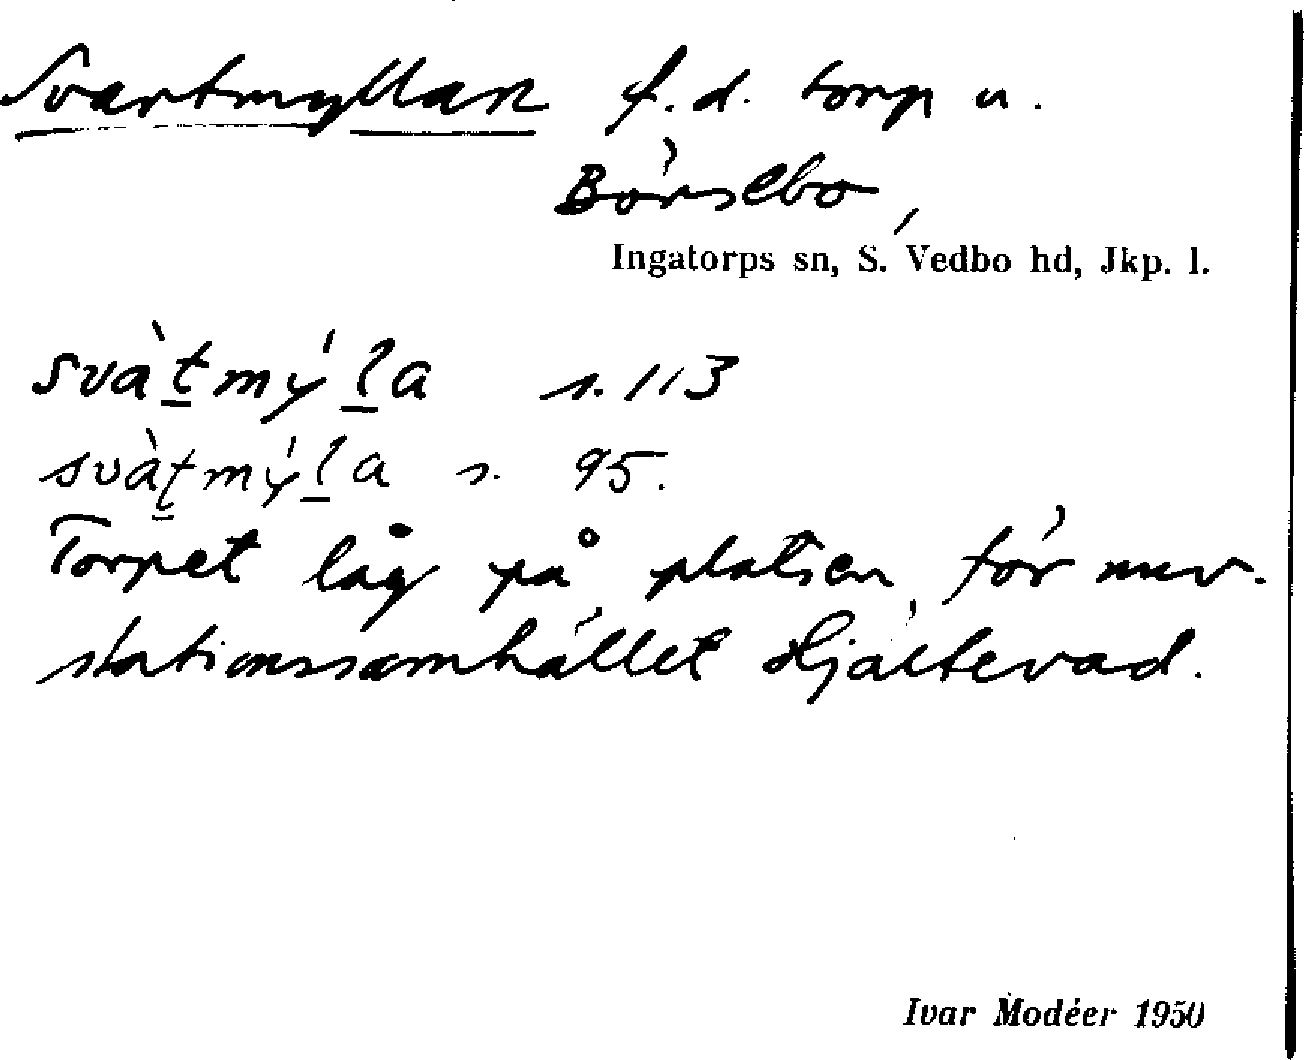 Svartmyllan f.d. torp u.
Börsebo,
Ingatorps sn, S. Vedbo hd, Jkp. l.
svàt̠mý l̠a s. 113
svàt̠mý l̠a s. 95.
Torpet låg på platsen för nuv.
stationssamhället Hjältevad.
Ivar Modéer 1950